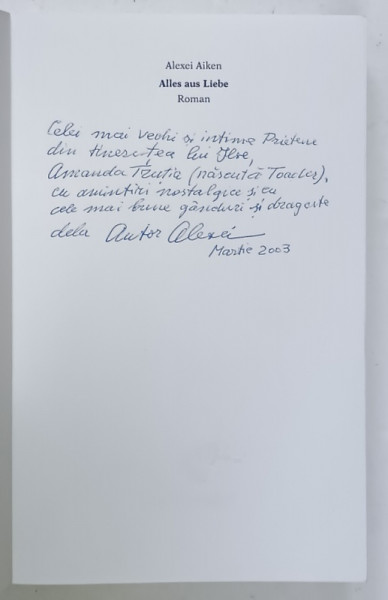 Alexei Aiken
Alles aus Liebe
Roman
Celei mai vechi și intime Prietene
din tinerețea lui Ilse,
Amanda (născută
cu amintiri nostalgice și cu
cele mai bune gânduri și dragoste
dela Autor Alexei
Martie 2003